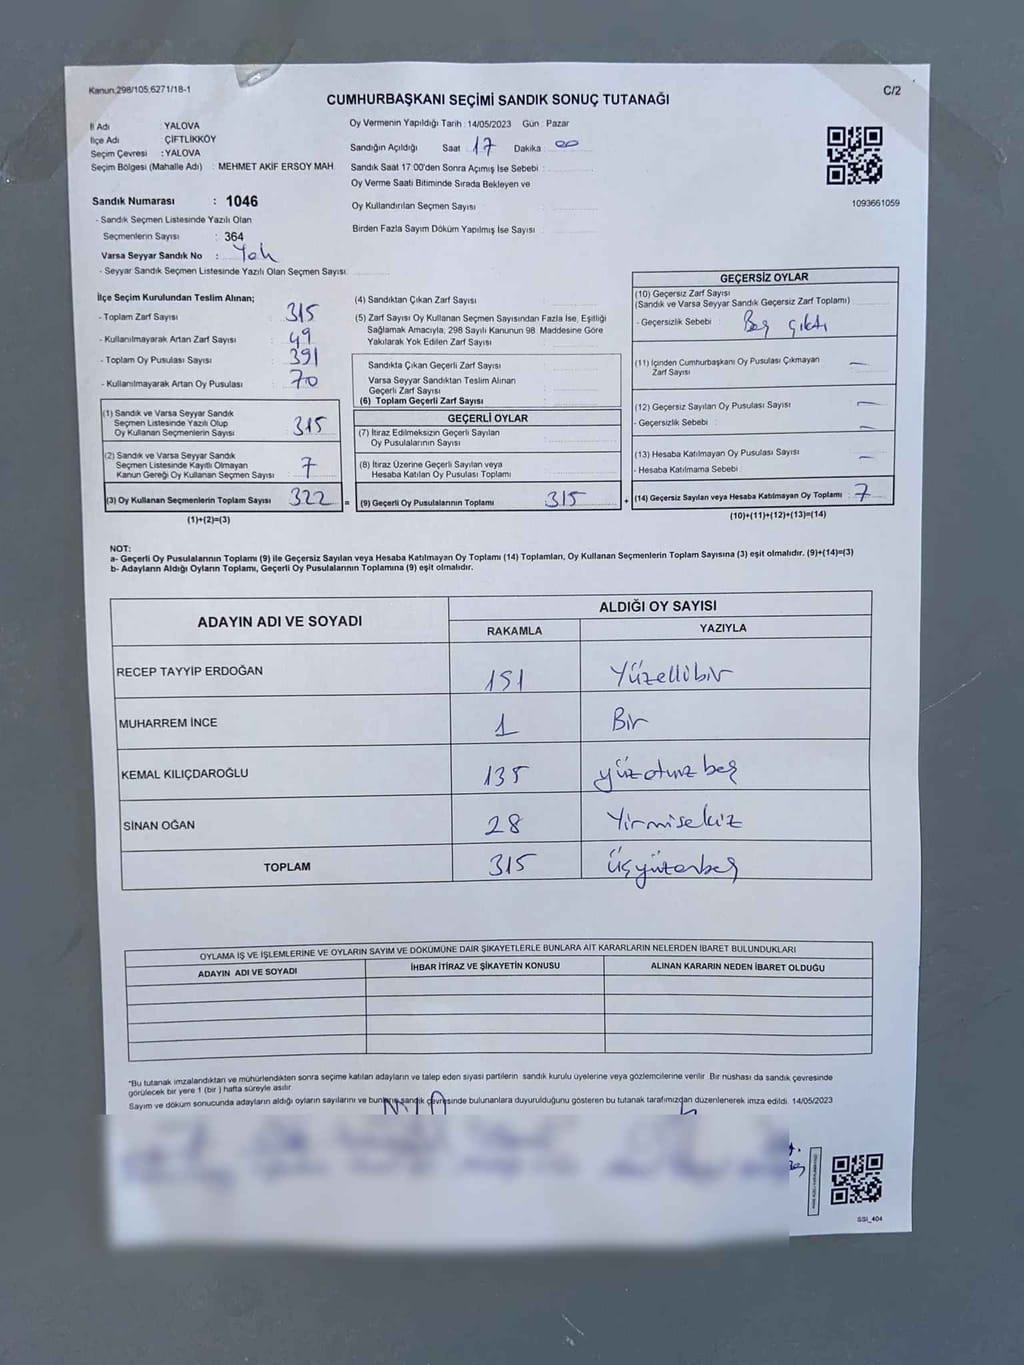 Kanun:298/105,6271/18-1
C/2
CUMHURBAŞKANI SEÇİMİ SANDIK SONUÇ TUTANAĞI
İl Adı YALOVA
İlçe Adı : ÇİFTLİKKÖY
Seçim Çevresi : YALOVA
Seçim Bölgesi (Mahalle Adı) : MEHMET AKİF ERSOY MAH.
Oy Vermenin Yapıldığı Tarih : 14/05/2023 Gün : Pazar
Sandığın Açıldığı Saat : 17 Dakika : 00
Sandık Saat 17:00'den Sonra Açımış İse Sebebi :
Oy Verme Saati Bitiminde Sırada Bekleyen ve
Oy Kullandırılan Seçmen Sayısı
Birden Fazla Sayım Döküm Yapılmış İse Sayısı
1093661059
Sandık Numarası : 1046
- Sandık Seçmen Listesinde Yazılı Olan
Seçmenlerin Sayısı : 364
Varsa Seyyar Sandık No : Yok
- Seyyar Sandık Seçmen Listesinde Yazılı Olan Seçmen Sayısı:
İlçe Seçim Kurulundan Teslim Alınan;
- Toplam Zarf Sayısı : 315
- Kullanılmayarak Artan Zarf Sayısı : 49
- Toplam Oy Pusulası Sayısı : 391
- Kullanılmayarak Artan Oy Pusulası : 70
(1) Sandık ve Varsa Seyyar Sandık
Seçmen Listesinde Yazılı Olup
Oy Kullanan Seçmenlerin Sayısı : 315
(2) Sandık ve Varsa Seyyar Sandık
Seçmen Listesinde Kayıtlı Olmayan
Kanun Gereği Oy Kullanan Seçmen Sayısı : 7
(3) Oy Kullanan Seçmenlerin Toplam Sayısı : 322 =
(1)+(2)=(3)
(4) Sandıktan Çıkan Zarf Sayısı
(5) Zarf Sayısı Oy Kullanan Seçmen Sayısından Fazla İse, Eşitliği
Sağlamak Amacıyla, 298 Sayılı Kanunun 98. Maddesine Göre
Yakılarak Yok Edilen Zarf Sayısı
Sandıkta Çıkan Geçerli Zarf Sayısı
Varsa Seyyar Sandıktan Teslim Alınan
Geçerli Zarf Sayısı
(6) Toplam Geçerli Zarf Sayısı
GEÇERLİ OYLAR
(7) İtiraz Edilmeksizin Geçerli Sayılan
Oy Pusulalarının Sayısı
(8) İtiraz Üzerine Geçerli Sayılan veya
Hesaba Katılan Oy Pusulası Toplamı
(9) Geçerli Oy Pusulalarının Toplamı : 315 +
GEÇERSİZ OYLAR
(10) Geçersiz Zarf Sayısı
(Sandık ve Varsa Seyyar Sandık Geçersiz Zarf Toplamı)
- Geçersizlik Sebebi : Boş çıktı
(11) İçinden Cumhurbaşkanı Oy Pusulası Çıkmayan
Zarf Sayısı —
(12) Geçersiz Sayılan Oy Pusulası Sayısı —
- Geçersizlik Sebebi : —
(13) Hesaba Katılmayan Oy Pusulası Sayısı —
- Hesaba Katılmama Sebebi
(14) Geçersiz Sayılan veya Hesaba Katılmayan Oy Toplamı : 7
(10)+(11)+(12)+(13)=(14)
NOT:
a- Geçerli Oy Pusulalarının Toplamı (9) ile Geçersiz Sayılan veya Hesaba Katılmayan Oy Toplamı (14) Toplamları, Oy Kullanan Seçmenlerin Toplam Sayısına (3) eşit olmalıdır. (9)+(14)=(3)
b- Adayların Aldığı Oyların Toplamı, Geçerli Oy Pusulalarının Toplamına (9) eşit olmalıdır.
ADAYIN ADI VE SOYADI ALDIĞI OY SAYISI
RAKAMLA YAZIYLA
RECEP TAYYİP ERDOĞAN 151 Yüzellibir
MUHARREM İNCE 1 Bir
KEMAL KILIÇDAROĞLU 135 yüzotuzbeş
SİNAN OĞAN 28 Yirmisekiz
TOPLAM 315 Üçyüzonbeş
OYLAMA İŞ VE İŞLEMLERİNE VE OYLARIN SAYIM VE DÖKÜMÜNE DAİR ŞİKAYETLERLE BUNLARA AİT KARARLARIN NELERDEN İBARET BULUNDUKLARI
ADAYIN ADI VE SOYADI İHBAR İTİRAZ VE ŞİKAYETİN KONUSU ALINAN KARARIN NEDEN İBARET OLDUĞU
*Bu tutanak imzalandıktan ve mühürlendikten sonra seçime katılan adayların ve talep eden siyasi partilerin sandık kurulu üyelerine veya gözlemcilerine verilir. Bir nüshası da sandık çevresinde
görülecek bir yere 1 (bir) hafta süreyle asılır.
Sayım ve döküm sonucunda adayların aldığı oyların sayılarını ve bunların sandık çevresinde bulunanlara duyurulduğunu gösteren bu tutanak tarafımızdan düzenlenerek imza edildi. 14/05/2023
SSI_404